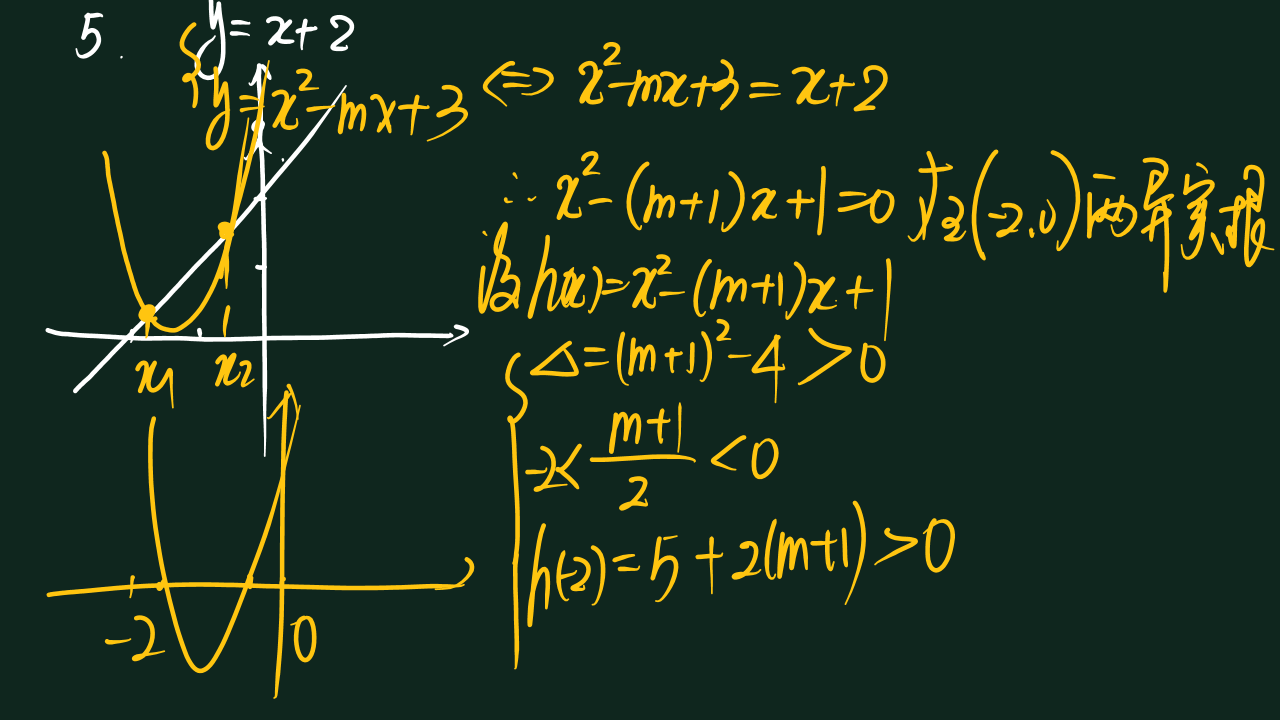 5. y = x + 2
y = x² - mx + 3 ⇔ x² - mx + 3 = x + 2
∴ x² - (m+1)x + 1 = 0 在(-2,0)两异实根
设h(x) = x² - (m+1)x + 1
Δ = (m+1)² - 4 > 0
-2 < (m+1)/2 < 0
h(-2) = 5 + 2(m+1) > 0
x₁ x₂
-2 0